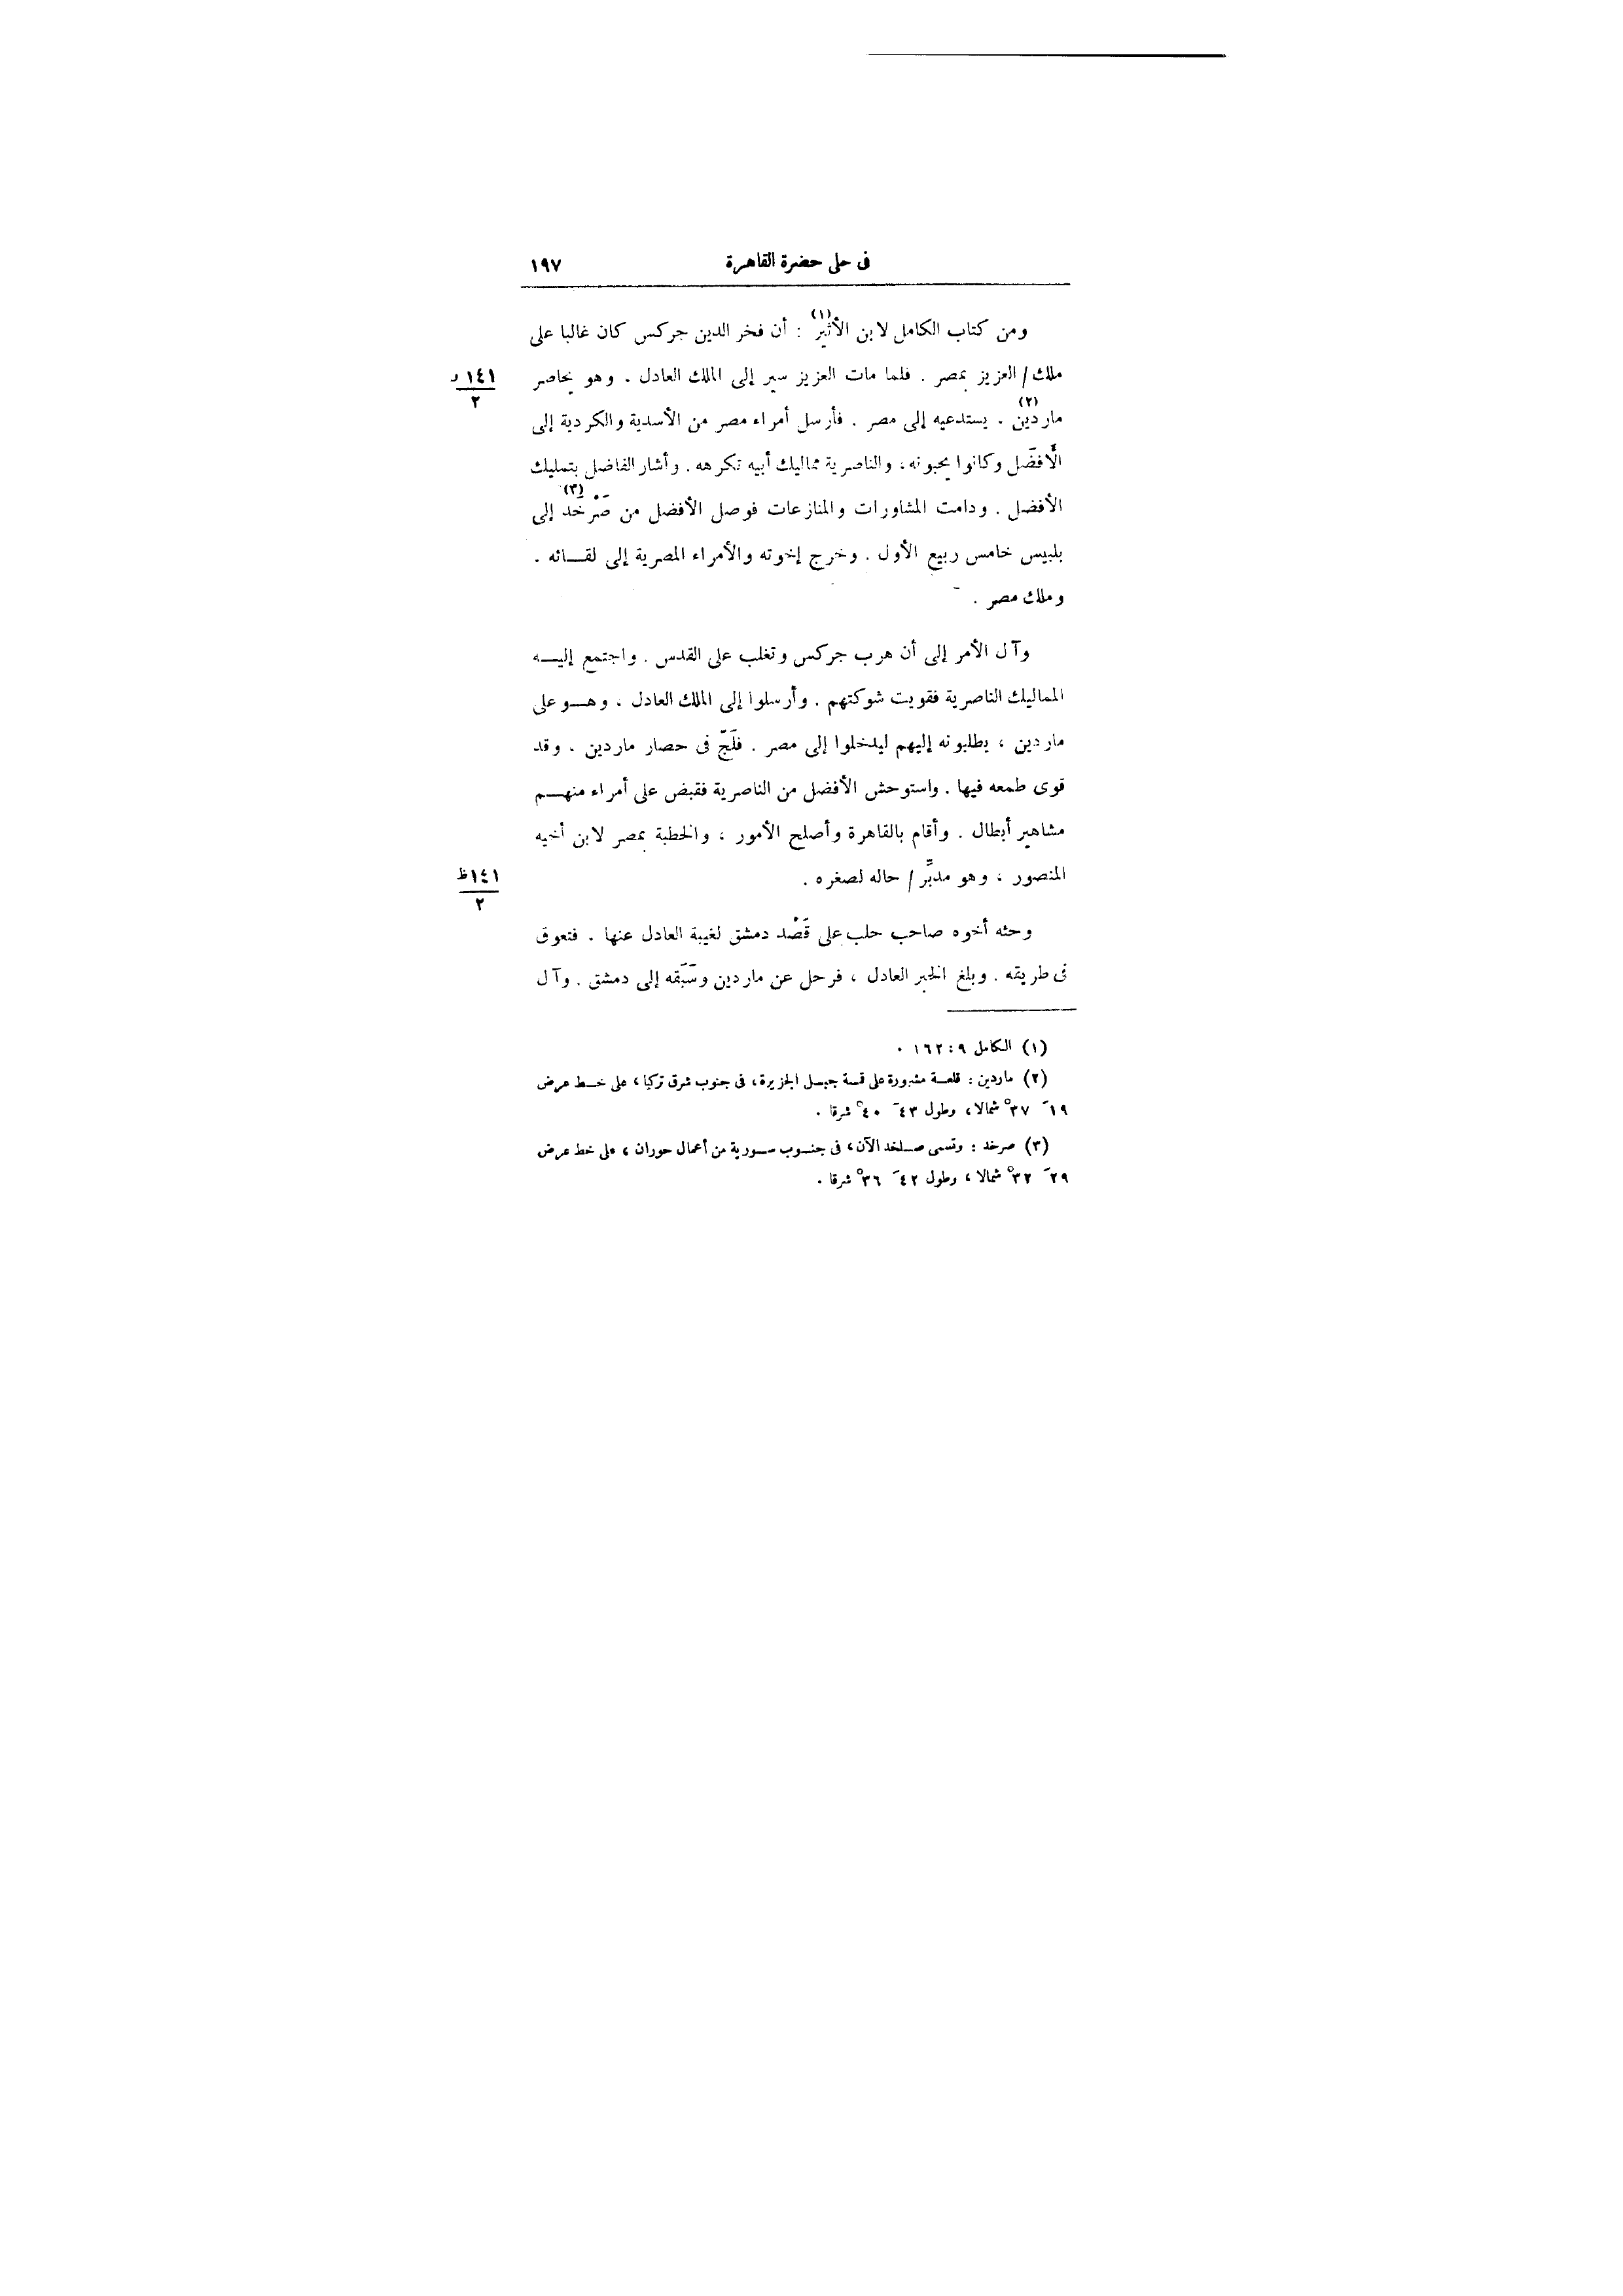 فى حلى حضرة القاهرة ١٩٧
ومن كتاب الكامل لابن الأثير (١) : أن فخر الدين جركس كان غالبا على
ملك / العزيز بمصر . فلما مات العزيز سير إلى الملك العادل . وهو يحاصر
١٤١ و
٢
ماردين (٢) . يستدعيه إلى مصر . فأرسل أمراء مصر من الأسدية والكردية إلى
الأَفضَل وكانوا يحبونه ، والناصرية مماليك أبيه تكرهه . وأشار الفاضل بتمليك
الأفضل . ودامت المشاورات والمنازعات فوصل الأفضل من صَرْخَد (٣) إلى
بلبيس خامس ربيع الأول . وخرج إخوته والأمراء المصرية إلى لقـــائه .
وملك مصر .
وآل الأمر إلى أن هرب جركس وتغلب على القدس . واجتمع إليـــه
المماليك الناصرية فقويت شوكتهم . وأرسلوا إلى الملك العادل ، وهـــو على
ماردين ، يطلبونه إليهم ليدخلوا إلى مصر . فلَجّ فى حصار ماردين . وقد
قوى طمعه فيها . واستوحش الأفضل من الناصرية فقبض على أمراء منهـــم
مشاهير أبطال . وأقام بالقاهرة وأصلح الأمور ، والخطبة بمصر لابن أخيه
المنصور ، وهو مدبِّر / حاله لصغره .
١٤١ ظ
٢
وحثه أخوه صاحب حلب على قَصْد دمشق لغيبة العادل عنها . فتعوق
فى طريقه . وبلغ الخبر العادل ، فرحل عن ماردين وسَبَقه إلى دمشق . وآل
(١) الكامل ٩ : ١٦٢ .
(٢) ماردين : قلعـــة مشهورة على قمة جبـــل الجزيرة ، فى جنوب شرق تركيا ، على خـــط عرض
١٩َ ٣٧° شمالا ، وطول ٤٣َ ٤٠° شرقا .
(٣) صرخد : وتسمى صـــلخد الآن ، فى جنـــوب ســـورية من أعمال حوران ، على خط عرض
٢٩َ ٣٢° شمالا ، وطول ٤٢َ ٣٦° شرقا .